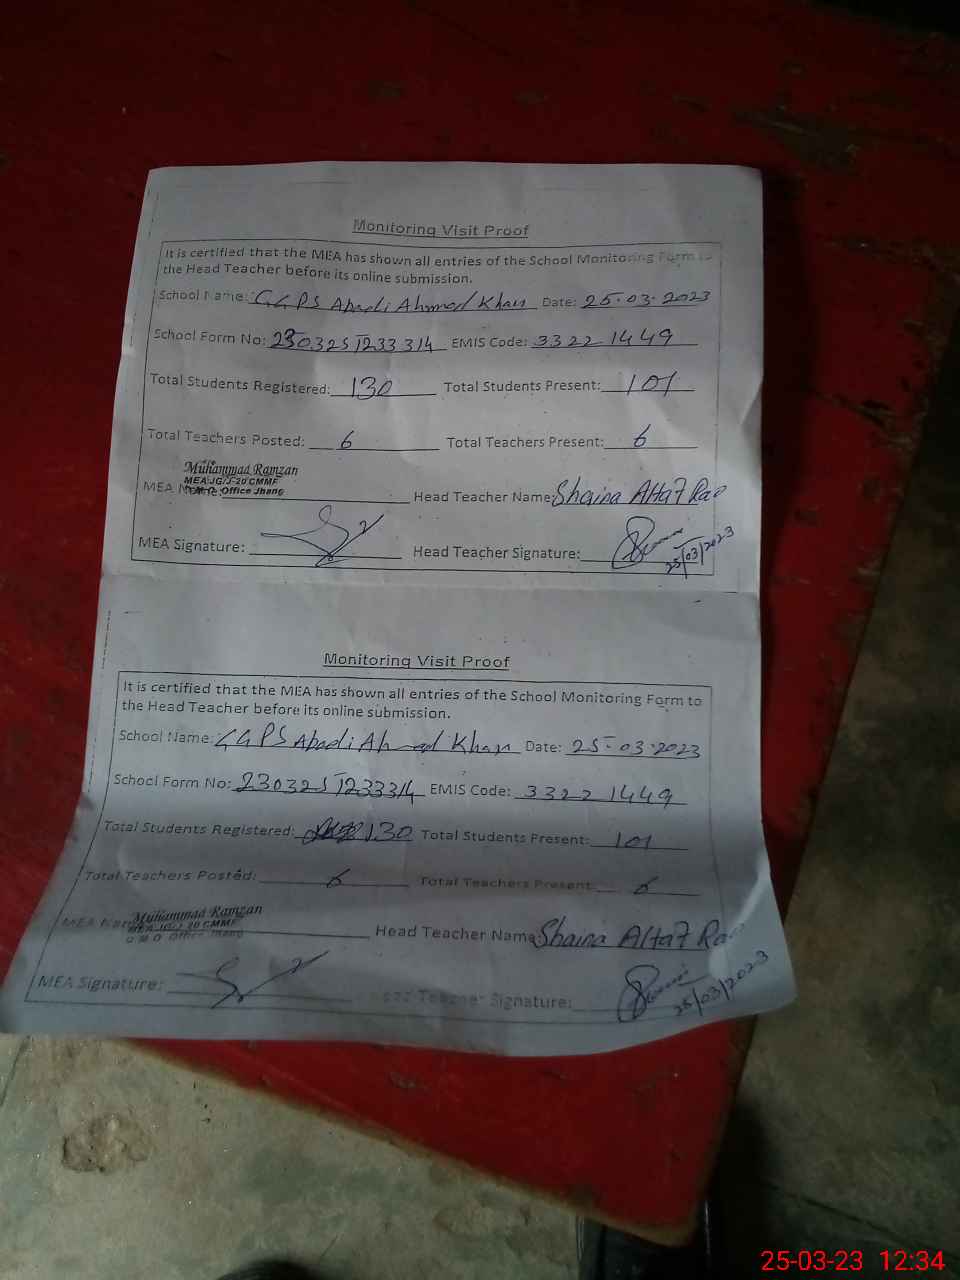 Monitoring Visit Proof
It is certified that the MEA has shown all entries of the School Monitoring Form to
the Head Teacher before its online submission.
School Name: GGPS Abadi Ahmad Khan Date: 25-03-2023
School Form No: 2303251233314 EMIS Code: 33221449
Total Students Registered: 130 Total Students Present: 101
Total Teachers Posted: 6 Total Teachers Present: 6
Muhammad Ramzan
MEA JG/J-20 CMMF
D.M.O. Office Jhang
MEA Name: Head Teacher Name: Shaina Altaf Rao
MEA Signature: Head Teacher Signature:
25/03/2023
Monitoring Visit Proof
It is certified that the MEA has shown all entries of the School Monitoring Form to
the Head Teacher before its online submission.
School Name: GGPS Abadi Ahmad Khan Date: 25-03-2023
School Form No: 2303251233314 EMIS Code: 33221449
Total Students Registered: 130 Total Students Present: 101
Total Teachers Posted: 6 Total Teachers Present: 6
Muhammad Ramzan
MEA JG/J-20 CMMF
D.M.O Office Jhang
MEA Name Head Teacher Name: Shaina Altaf Rao
MEA Signature: Head Teacher Signature:
25/03/2023
25-03-23 12:34